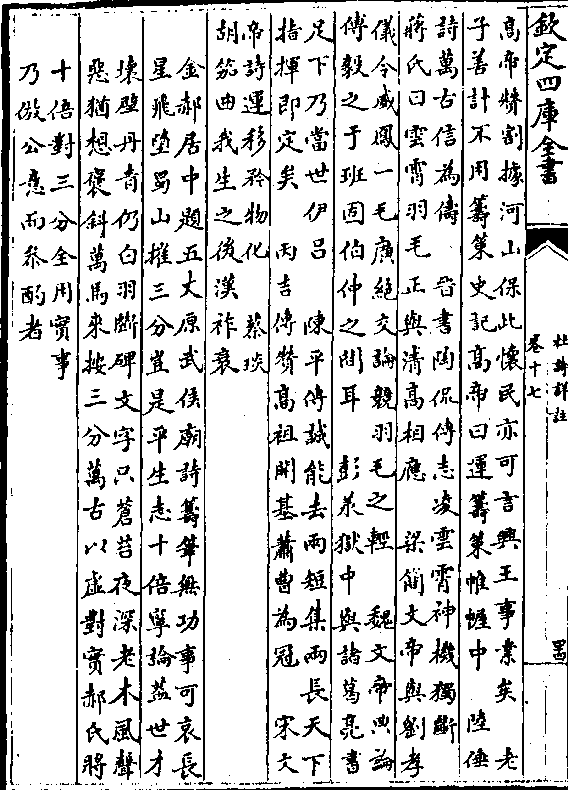 欽定四庫全書
杜詩詳註
卷十七
高帝將割據河山保此懷民亦可言興王事業矣 老
子善計不用籌策史記高帝曰運籌策帷幄中 陸倕
詩萬古信為儔 晉書陶侃傳志凌雲霄神機獨斷
蔣氏曰雲霄羽毛正與清高相應 梁簡文帝與劉孝
儀令威鳳一毛廣絶交論競羽毛之輕 魏文帝典論
傅毅之于班固伯仲之間耳 彭羕獄中與諸葛亮書
足下乃當世伊呂 陳平傳誠能去兩短集兩長天下
指揮即定矣 丙吉傳賛高祖開基蕭曹為冠 宋文
帝詩運移矜物化 蔡琰
胡笳曲我生之後漢祚衰
金郝居中題五丈原武侯廟詩籌筆無功事可哀長
星飛墮蜀山摧三分豈是平生志十倍寧論葢世才
壞壁丹青仍白羽斷碑文字只蒼苔夜深老木風聲
惡猶想褒斜萬馬來按三分萬古以虛對實郝氏將
十倍對三分全用實事
乃倣公意而叅酌者